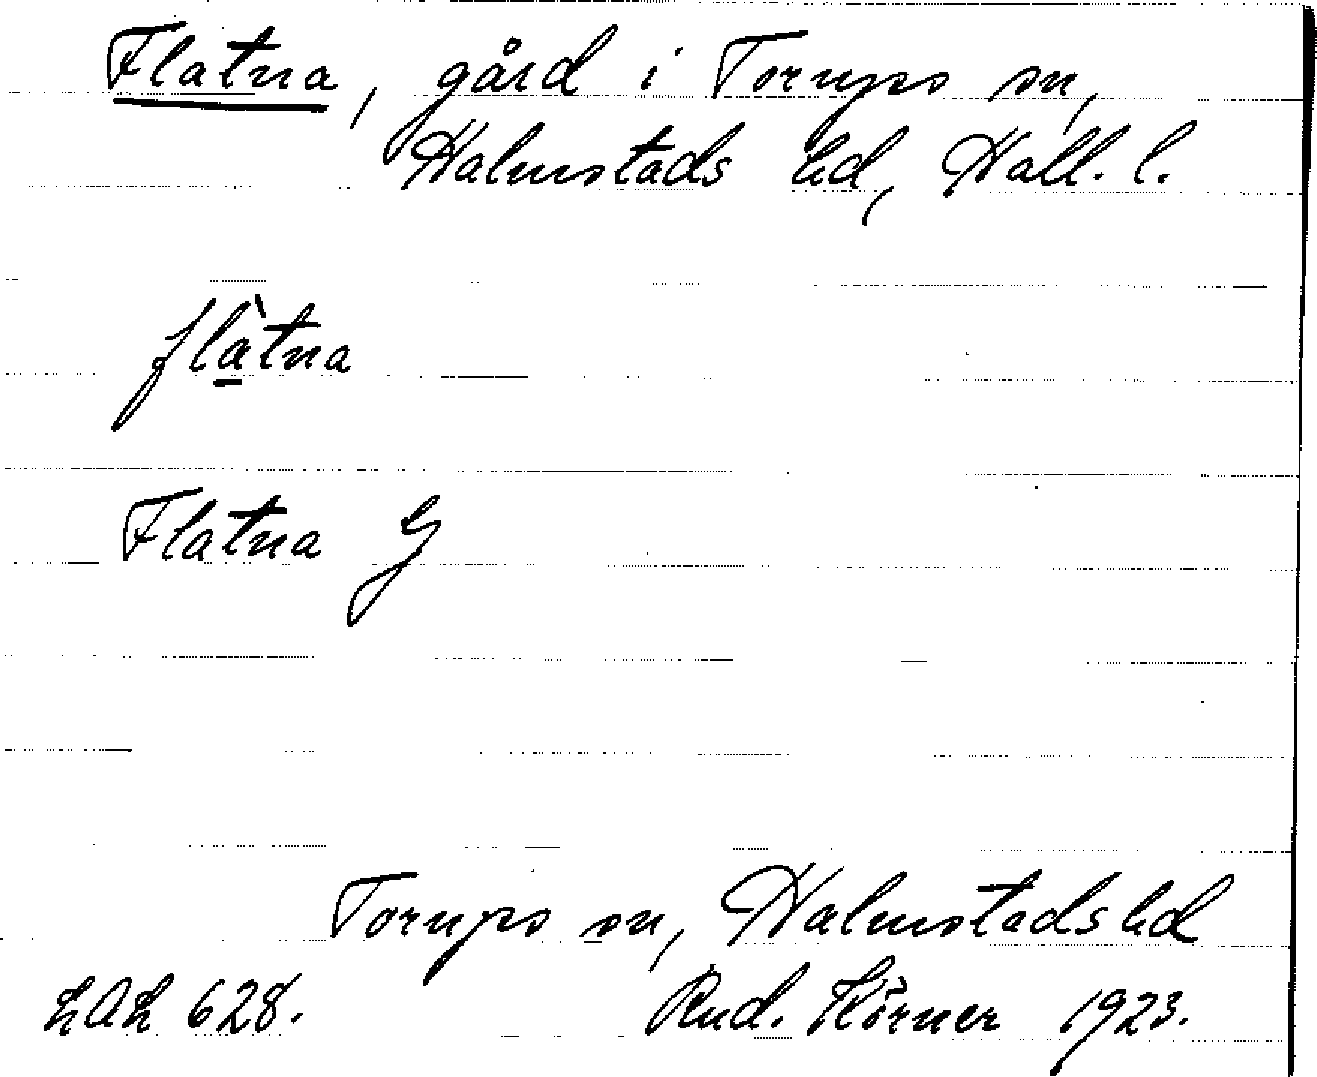 Flatna, gård i Torups sn,
Halmstads hd, Hall. l.
flàtna
Flatna G
Torups sn, Halmstads hd
LAL 628. Rud. Hörner 1923.